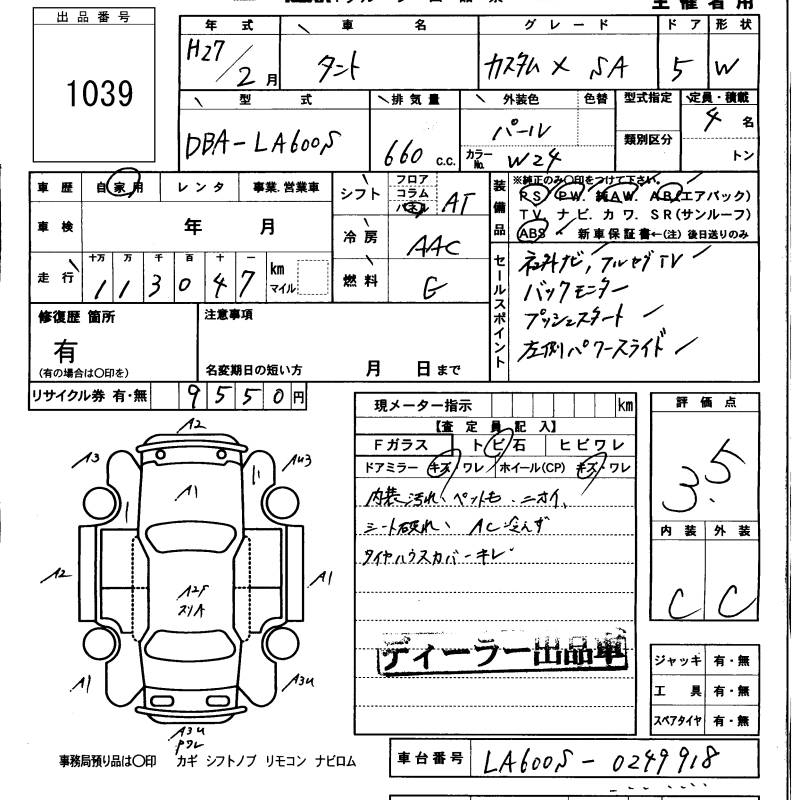 出品番号
1039
主催者用
年式 車名 グレード ドア 形状
H27/2月 タント カスタム X SA 5 W
型式 排気量 外装色 色替 型式指定 定員・積載
DBA-LA600S 660 c.c. パール 類別区分 4名
カラーNo. W24 トン
車歴 自家用 レンタ 事業.営業車
車検 年 月
走行 十万 万 千 百 十 一
1 1 3 0 4 7 km マイル
シフト フロア コラム パネル AT
冷房 AAC
燃料 G
装備品
※純正のみ○印をつけて下さい。
PS PW. 純AW. AB(エアバック)
TV. ナビ. カワ. SR(サンルーフ)
ABS 新車保証書←(注) 後日送りのみ
セールスポイント
社外ナビ, フルセグTV
バックモニター
プッシュスタート
左側パワースライド
修復歴 箇所
有
(有の場合は○印を)
注意事項
名変期日の短い方 月 日まで
リサイクル券 有・無 9550円
現メーター指示 km
【査定員記入】
Fガラス トビ石 ヒビワレ
ドアミラー キズ/ワレ ホイール(CP) キズ・ワレ
内装汚れ、ペット毛、ニオイ、
シート破れ、AC冷えず
タイヤハウスカバーキレ
ディーラー出品車
評価点
3.5
内装 外装
C C
ジャッキ 有・無
工具 有・無
スペアタイヤ 有・無
A2
A3
AU3
A1
A2
A2F
スリA
A1
A1
A3U
A3U
Pワレ
事務局預り品は○印 カギ シフトノブ リモコン ナビロム
車台番号 LA600S-0249918